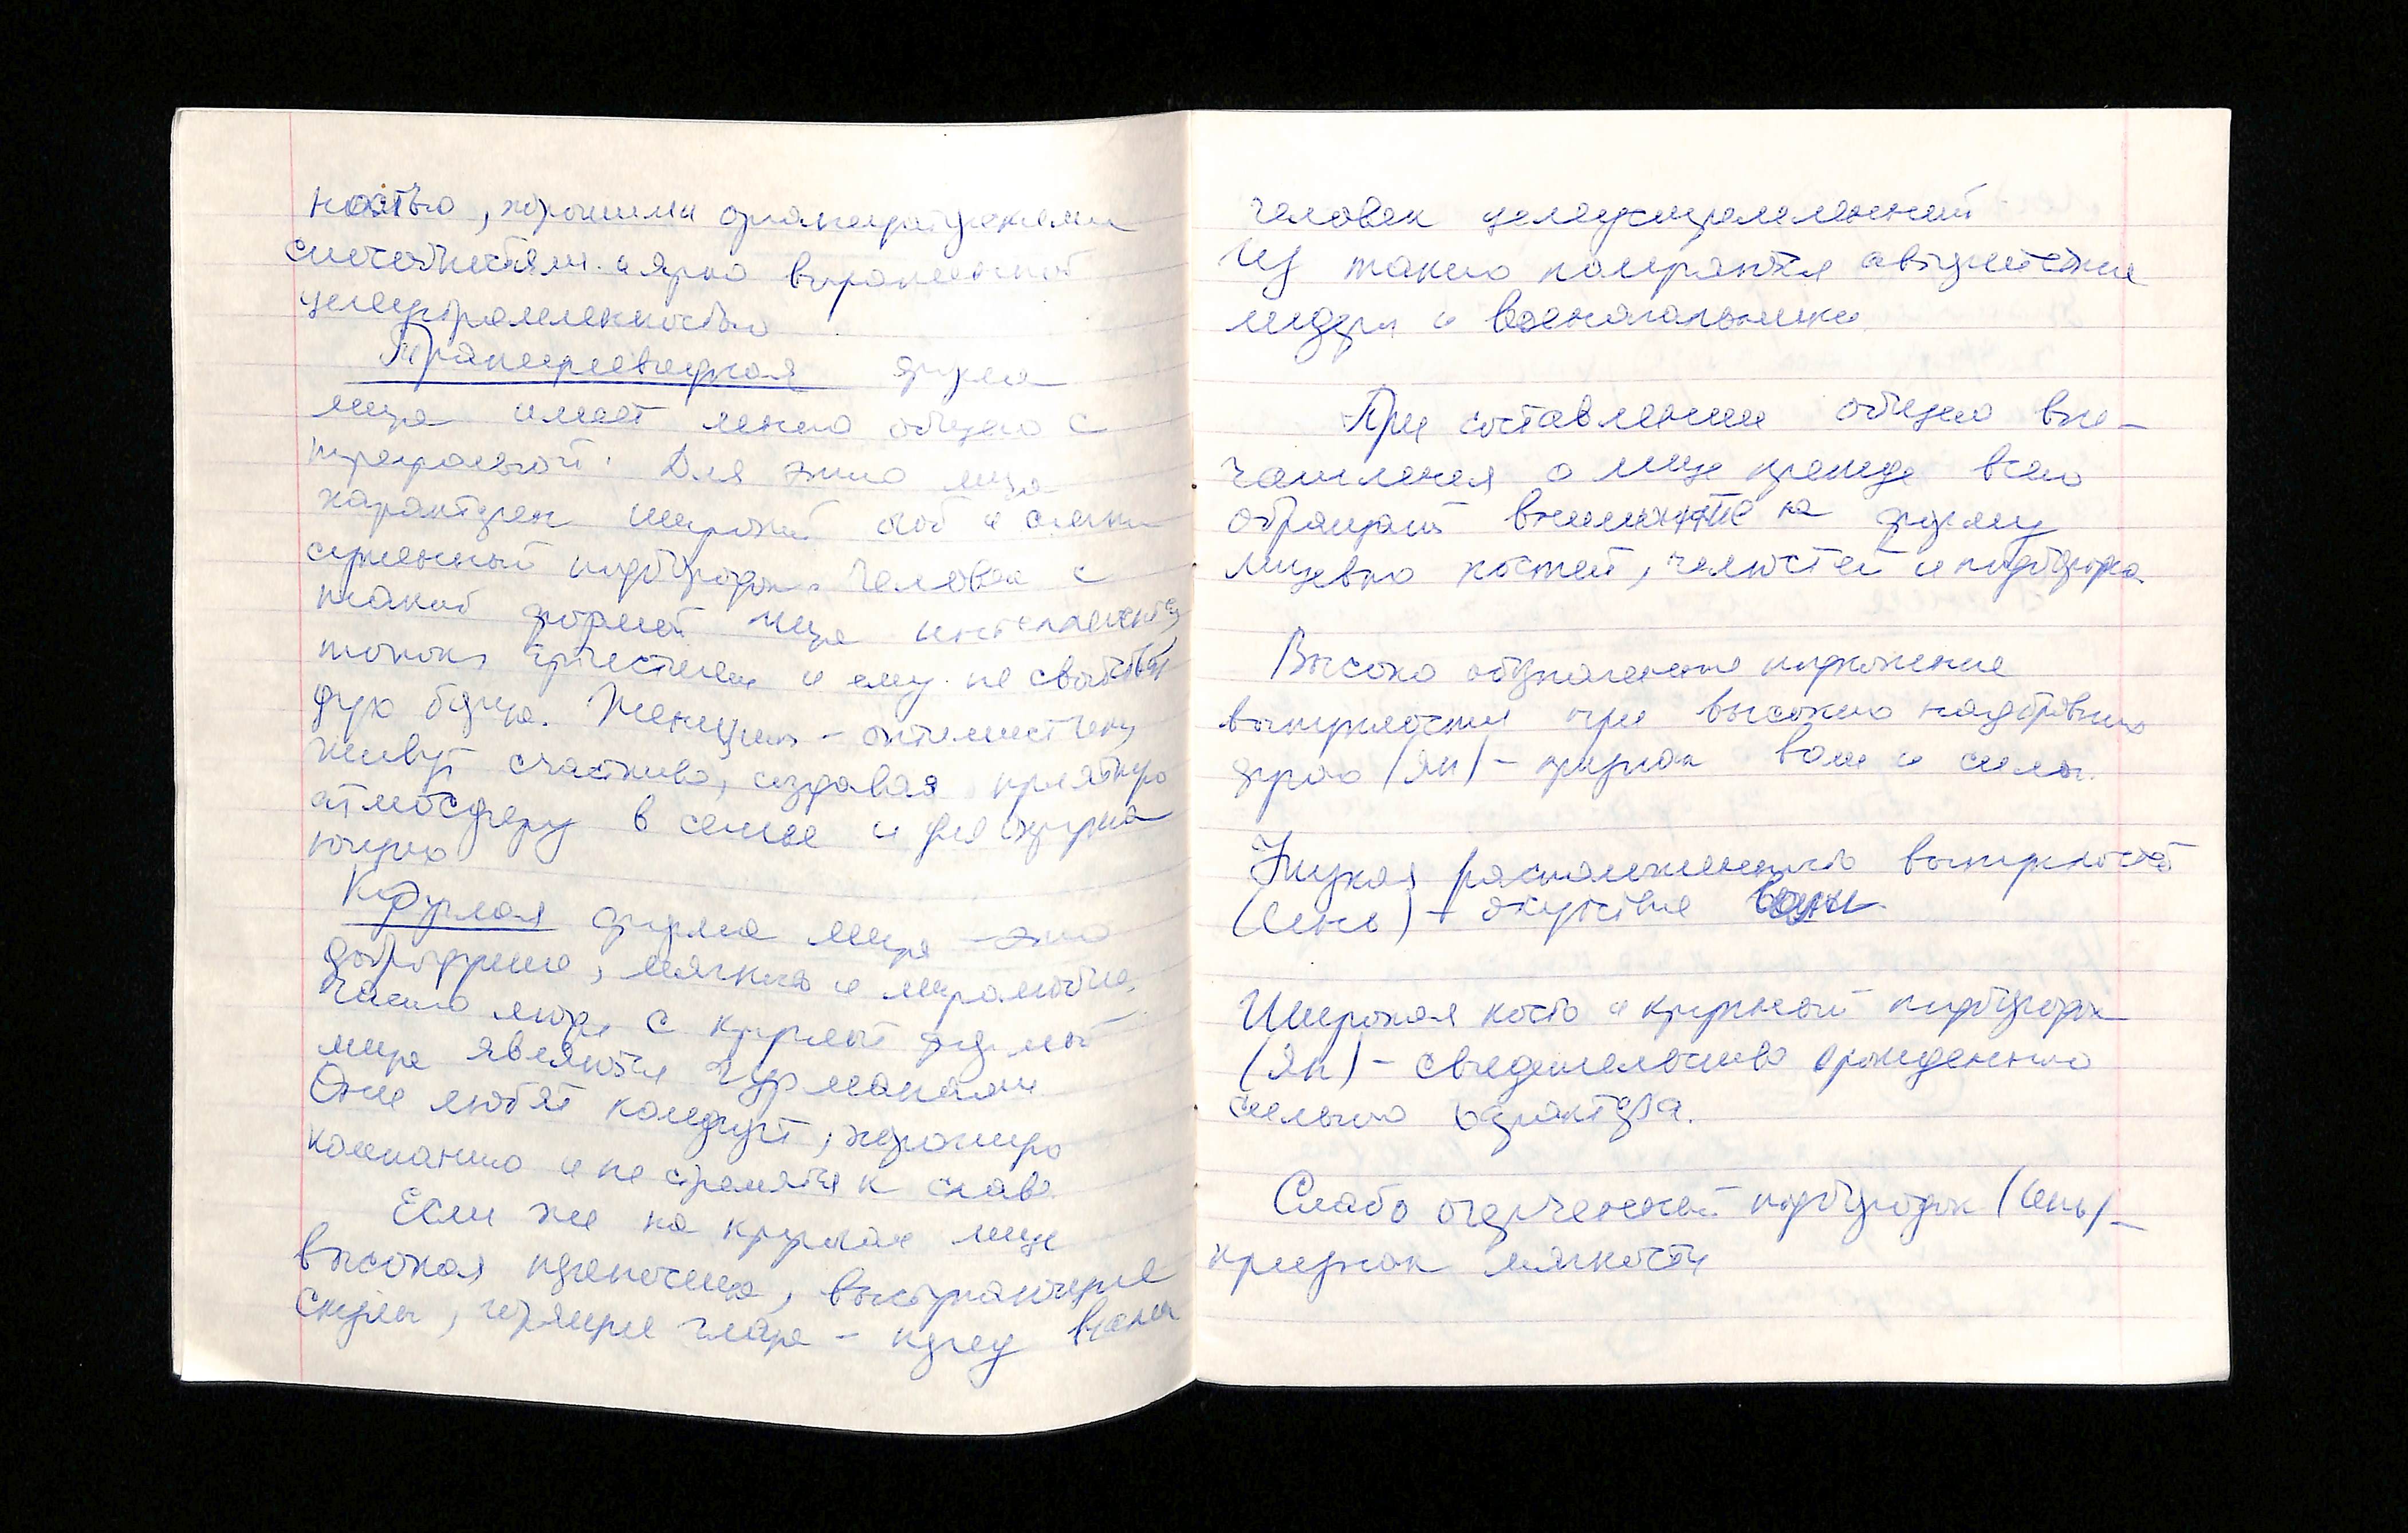 ностью, хорошими организаторскими
способностями и ярко выраженной
целеустремленностью
Трапециевидная форма
лица имеет много общего с
треугольной. Для этого лица
характерен широкий лоб и слегка
суженный подбородок. Человек с
такой формой лица интеллигентен,
тонок, артистичен и ему не свойствен
дух борца. Женщины - оптимистичны,
живут счастливо, создавая приятную
атмосферу в семье и для окружа
ющих
Круглая форма лица - это
добродушие, мягкость и миролюбие.
Часто люди с круглой формой
лица являются гурманами
Они любят комфорт, хорошую
компанию и не стремятся к славе
Если же на круглом лице
высокая переносица, выступающие
скулы, горящие глаза - перед вами
человек целеустремленный
Из таких получаются авторитетные
лидеры и военачальники
При составлении общего впе-
чатления о лице прежде всего
обращают внимание на форму
лицевых костей, челюстей и подбородка
Высоко обозначенное положение
выпуклости при высоких надбровных
дугах (Ян) - признак воли и силы.
Низкая расположенность выпуклостей
(Инь) - отсутствие воли
Широкая кость и крупный подбородок
(Ян) - свидетельство врожденного
сильного характера.
Слабо очерченный подбородок (Инь) -
признак мягкости